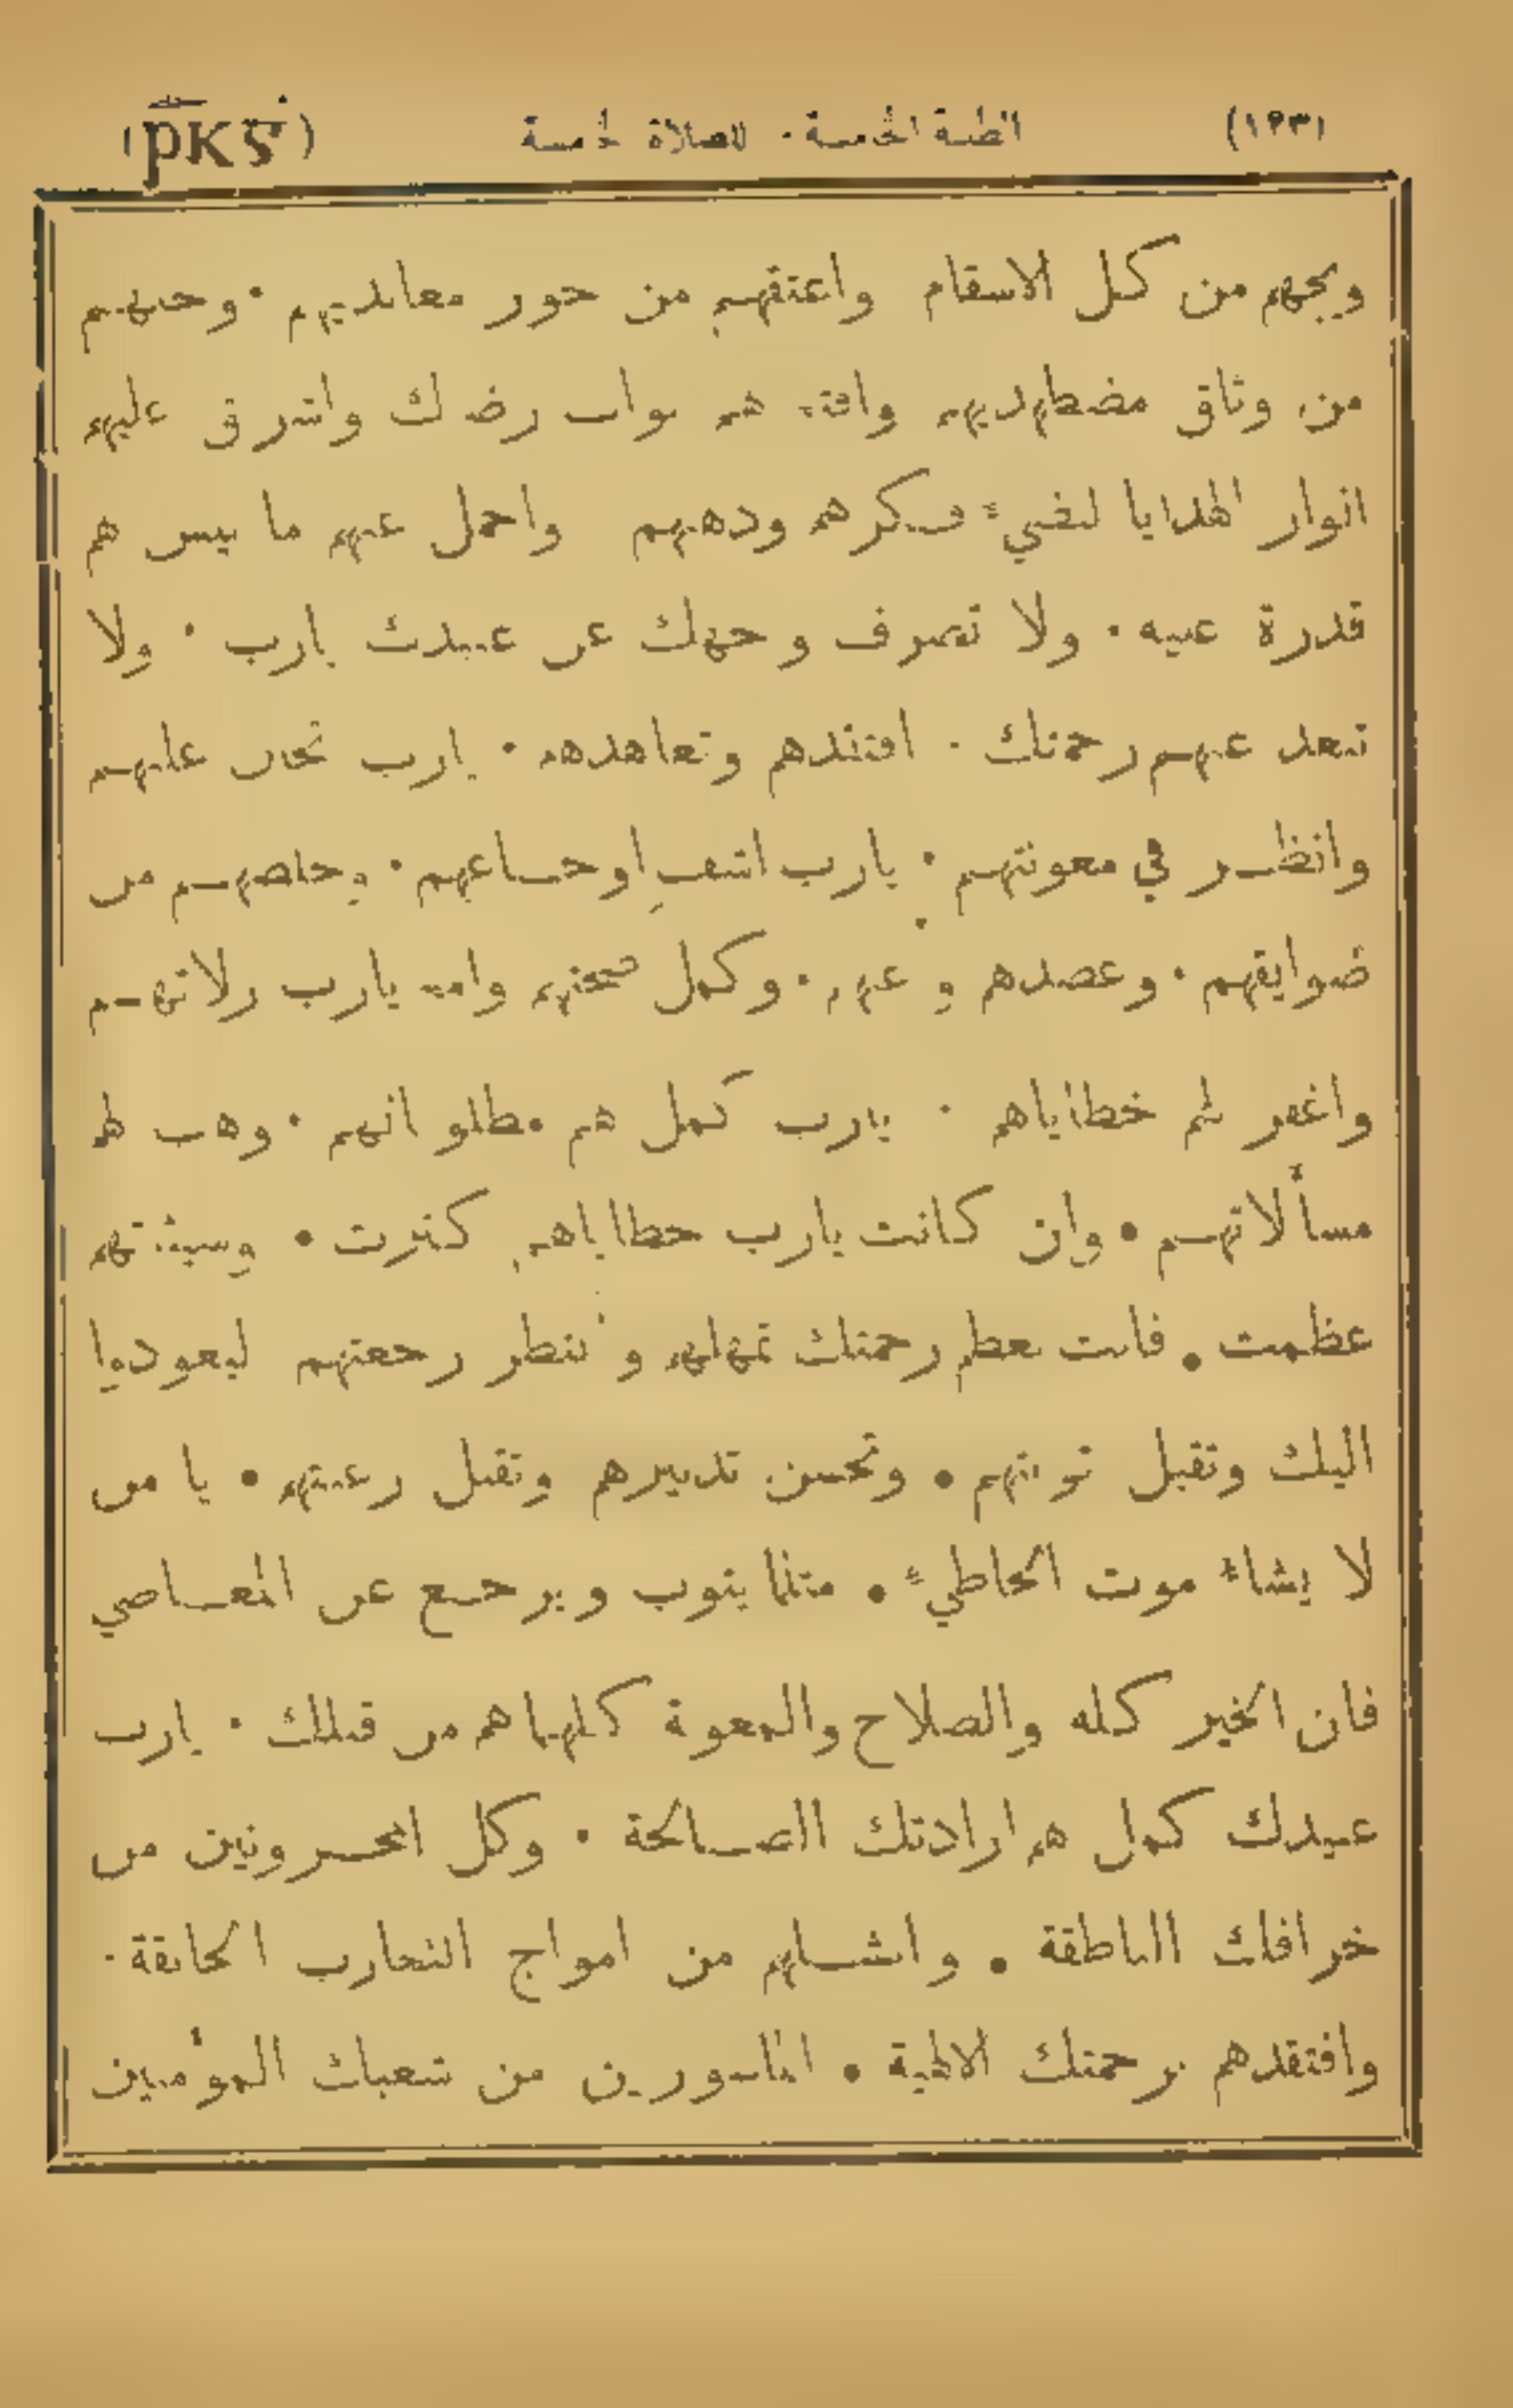 (١٩٣) الطلبة الخامسة · الصلاة الخامسة (ⲣⲕⲋ)
ونجهم من كل الاسقام واعتقهم من جور معانديهم · ونجهم
من وثاق مضطهديهم وافتح لهم ابواب رضاك واشرق عليهم
انوار الهدايا لتضيء فكرهم وذهنهم واحمل عنهم ما ليس لهم
قدرة عليه · ولا تصرف وجهك عن عبيدك يارب · ولا
تبعد عنهم رحمتك · افتقدهم وتعاهدهم · يارب تحنن عليهم
وانظر في معونتهم · يارب اشف اوجاعهم · وخلصهم من
ضوايقهم · وعضدهم وعنهم · وكمل صحتهم وامح يارب زلاتهم
واغفر لهم خطاياهم · يارب كمل لهم مطلوباتهم · وهب لهم
مسألاتهم • وان كانت يارب خطاياهم كثرت • وسيئتهم
عظمت • فانت بعظم رحمتك تمهلهم و تنتظر رجعتهم ليعودوا
اليك وتقبل توبتهم • وتحسن تدبيرهم وتقبل رغبتهم • يا من
لا يشاء موت الخاطيء • مثلما يتوب ويرجع عن المعاصي
فان الخير كله والصلاح والمعونة كلهما هم من قبلك · يارب
عبيدك كمل لهم ارادتك الصالحة · وكل المحزونين من
خرافك الناطقة • وانشلهم من امواج التجارب الخانقة ·
وافتقدهم برحمتك الالهية • الماسورين من شعبك المؤمنين